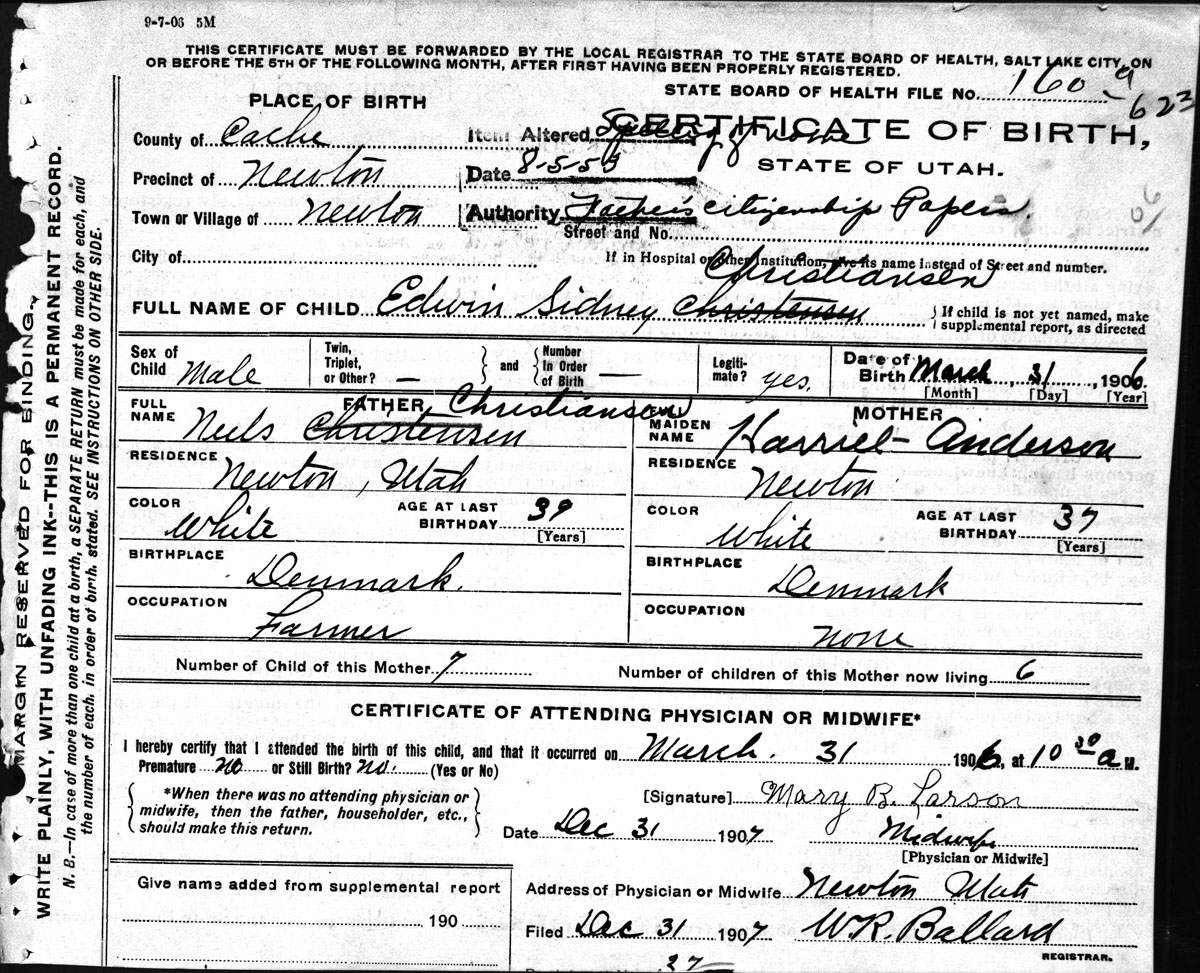 9-7-06 5M
THIS CERTIFICATE MUST BE FORWARDED BY THE LOCAL REGISTRAR TO THE STATE BOARD OF HEALTH, SALT LAKE CITY, ON
OR BEFORE THE 5TH OF THE FOLLOWING MONTH, AFTER FIRST HAVING BEEN PROPERLY REGISTERED.
STATE BOARD OF HEALTH FILE NO. 160 9
623
PLACE OF BIRTH
CERTIFICATE OF BIRTH,
STATE OF UTAH.
County of Cache
Item Altered Spelling of name
Precinct of Newton
Date 8-5-53
Town or Village of Newton
Authority Father's citizenship Papers.
Street and No.
City of
If in Hospital or other Institution, give its name instead of Street and number.
Christiansen
FULL NAME OF CHILD Edwin Sidney Christensen
If child is not yet named, make
supplemental report, as directed
Sex of Child Male
Twin, Triplet, or Other? —
and
Number In Order of Birth —
Legiti-mate? yes.
Date of Birth March, 31, 1906.
[Month] [Day] [Year]
FATHER
FULL NAME Neils Christensen Christiansen
RESIDENCE
Newton, Utah
COLOR White
AGE AT LAST BIRTHDAY 39
[Years]
BIRTHPLACE
Denmark.
OCCUPATION
Farmer
MOTHER
FULL MAIDEN NAME Harriet Anderson
RESIDENCE
Newton
COLOR White
AGE AT LAST BIRTHDAY 37
[Years]
BIRTHPLACE
Denmark
OCCUPATION
none
Number of Child of this Mother 7
Number of children of this Mother now living 6
CERTIFICATE OF ATTENDING PHYSICIAN OR MIDWIFE*
I hereby certify that I attended the birth of this child, and that it occurred on March. 31 1906, at 10 30 a M.
Premature no or Still Birth? no. (Yes or No)
*When there was no attending physician or
midwife, then the father, householder, etc.,
should make this return.
[Signature] Mary B. Larson
Date Dec 31 1907
Midwife
[Physician or Midwife]
Give name added from supplemental report
190
Address of Physician or Midwife Newton Utah
Filed Dec 31 1907
W.R. Ballard
REGISTRAR.
27
MARGIN RESERVED FOR BINDING.
WRITE PLAINLY, WITH UNFADING INK--THIS IS A PERMANENT RECORD.
N. B.—In case of more than one child at a birth, a SEPARATE RETURN must be made for each, and
the number of each, in order of birth, stated. SEE INSTRUCTIONS ON OTHER SIDE.